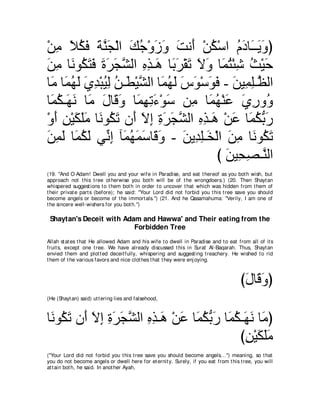 (وَيَـَادَمُ اسْكُنْ أَنتَ وَزَوْجُكَ الْجَنَّةَ فَكُلاَ مِنْ
حَيْثُ شِئْتُمَا وَلاَ تَقْرَبَا هَـذِهِ الشَّجَرَةَ فَتَكُونَا مِنَ
الظَّـلِمِينَ - فَوَسْوَسَ لَهُمَا الشَّيْطَـنُ لِيُبْدِيَ لَهُمَا مَا
وُورِيَ عَنْهُمَا مِن سَوْءَتِهِمَا وَقَالَ مَا نَهَـكُمَا
رَبُّكُمَا عَنْ هَـذِهِ الشَّجَرَةِ إِلاَّ أَن تَكُونَا مَلَكَيْنِ أَوْ
تَكُونَا مِنَ الْخَـلِدِينَ - وَقَاسَمَهُمَآ إِنِّي لَكُمَا لَمِنَ
النَّـصِحِينَ )
(19. "And O Adam! Dwell you and your wife in Paradise, and eat thereof as you both wish, but
approach not this tree otherwise you both will be of the wrongdoers.) (20. Then Shaytan
whispered suggestions to them both in order to uncover that which was hidden from them of
their private parts (before); he said: "Your Lord did not forbid you this tree save you should
become angels or become of the immortals.") (21. And he Qasamahuma: "Verily, I am one of
the sincere well-wishers for you both.")
Shaytan's Deceit with Adam and Hawwa' and Their eating from the
Forbidden Tree
Allah states that He allowed Adam and his wife to dwell in Paradise and to eat from all of its
fruits, except one tree. We have already discussed this in Surat Al-Baqarah. Thus, Shaytan
envied them and plotted deceitfully, whispering and suggesting treachery. He wished to rid
them of the various favors and nice clothes that they were enjoying.
(وَقَالَ)
(He (Shaytan) said) uttering lies and falsehood,
(مَا نَهَـكُمَا رَبُّكُمَا عَنْ هَـذِهِ الشَّجَرَةِ إِلاَّ أَن تَكُونَا
مَلَكَيْنِ)
("Your Lord did not forbid you this tree save you should become angels...") meaning, so that
you do not become angels or dwell here for eternity. Surely, if you eat from this tree, you will
attain both, he said. In another Ayah,